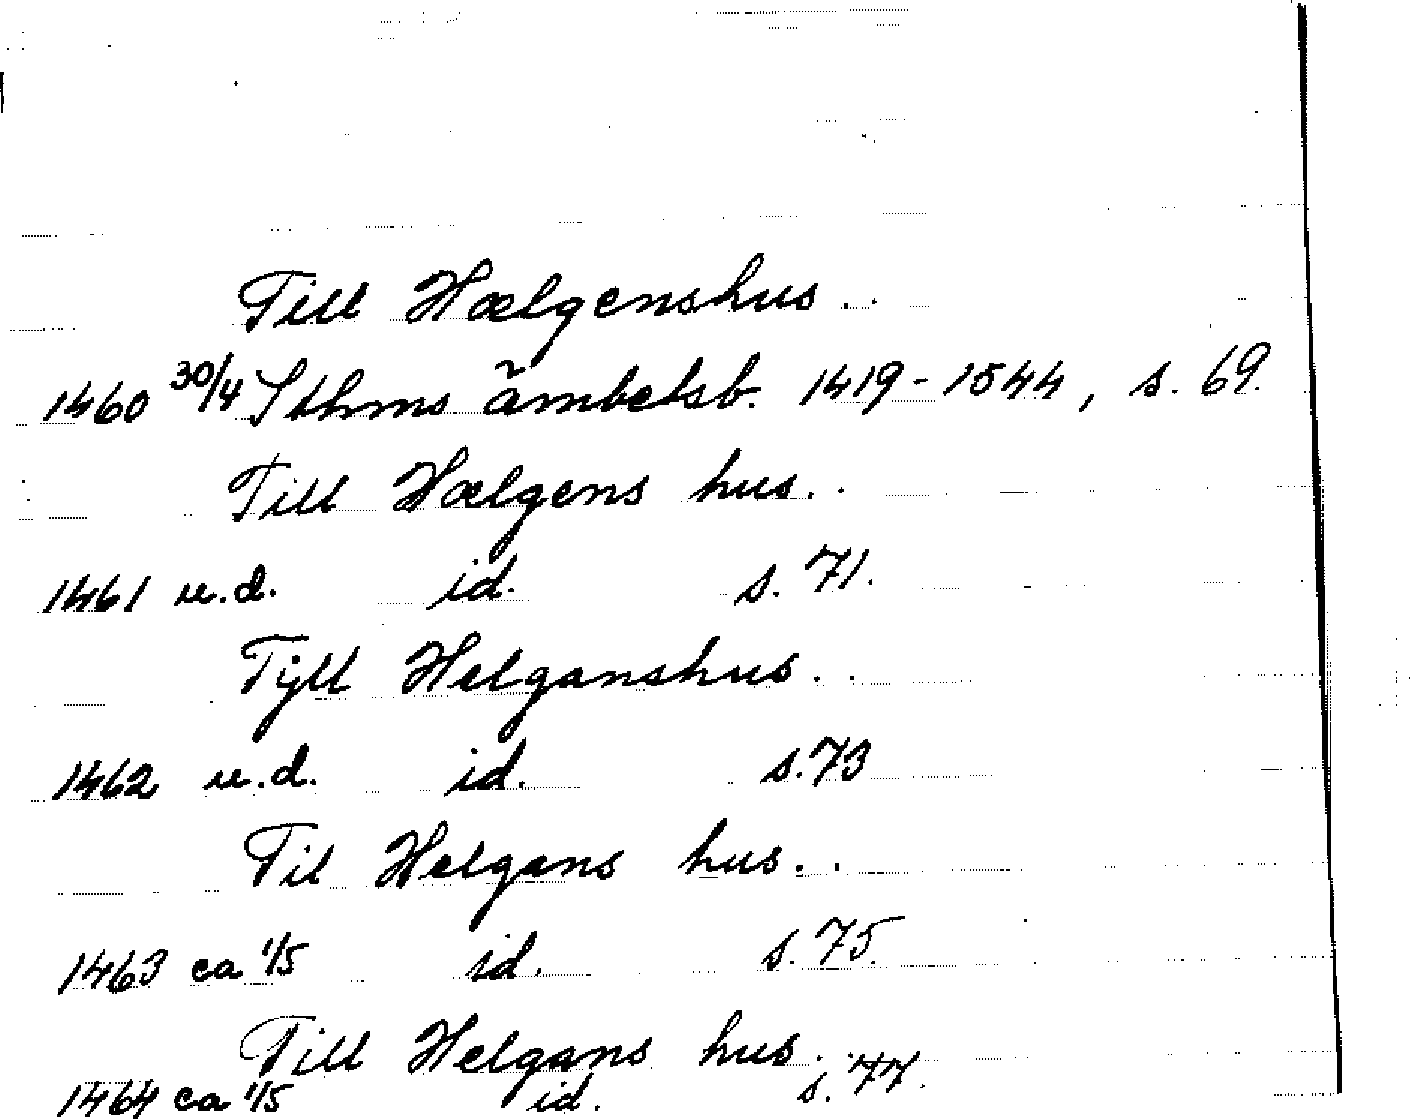 Till Hælgenshus..
1460 30/4 Sthms ämbetsb. 1419-1544, s. 69.
Till Hælgens hus..
1461 u.d. id. s. 71.
Tÿll Helganshus..
1462 u.d. id. s. 73
Til Helgans hus..
1463 ca 1/5 id. s. 75.
Till Helgans hus..
1464 ca 1/5 id. s. 77.